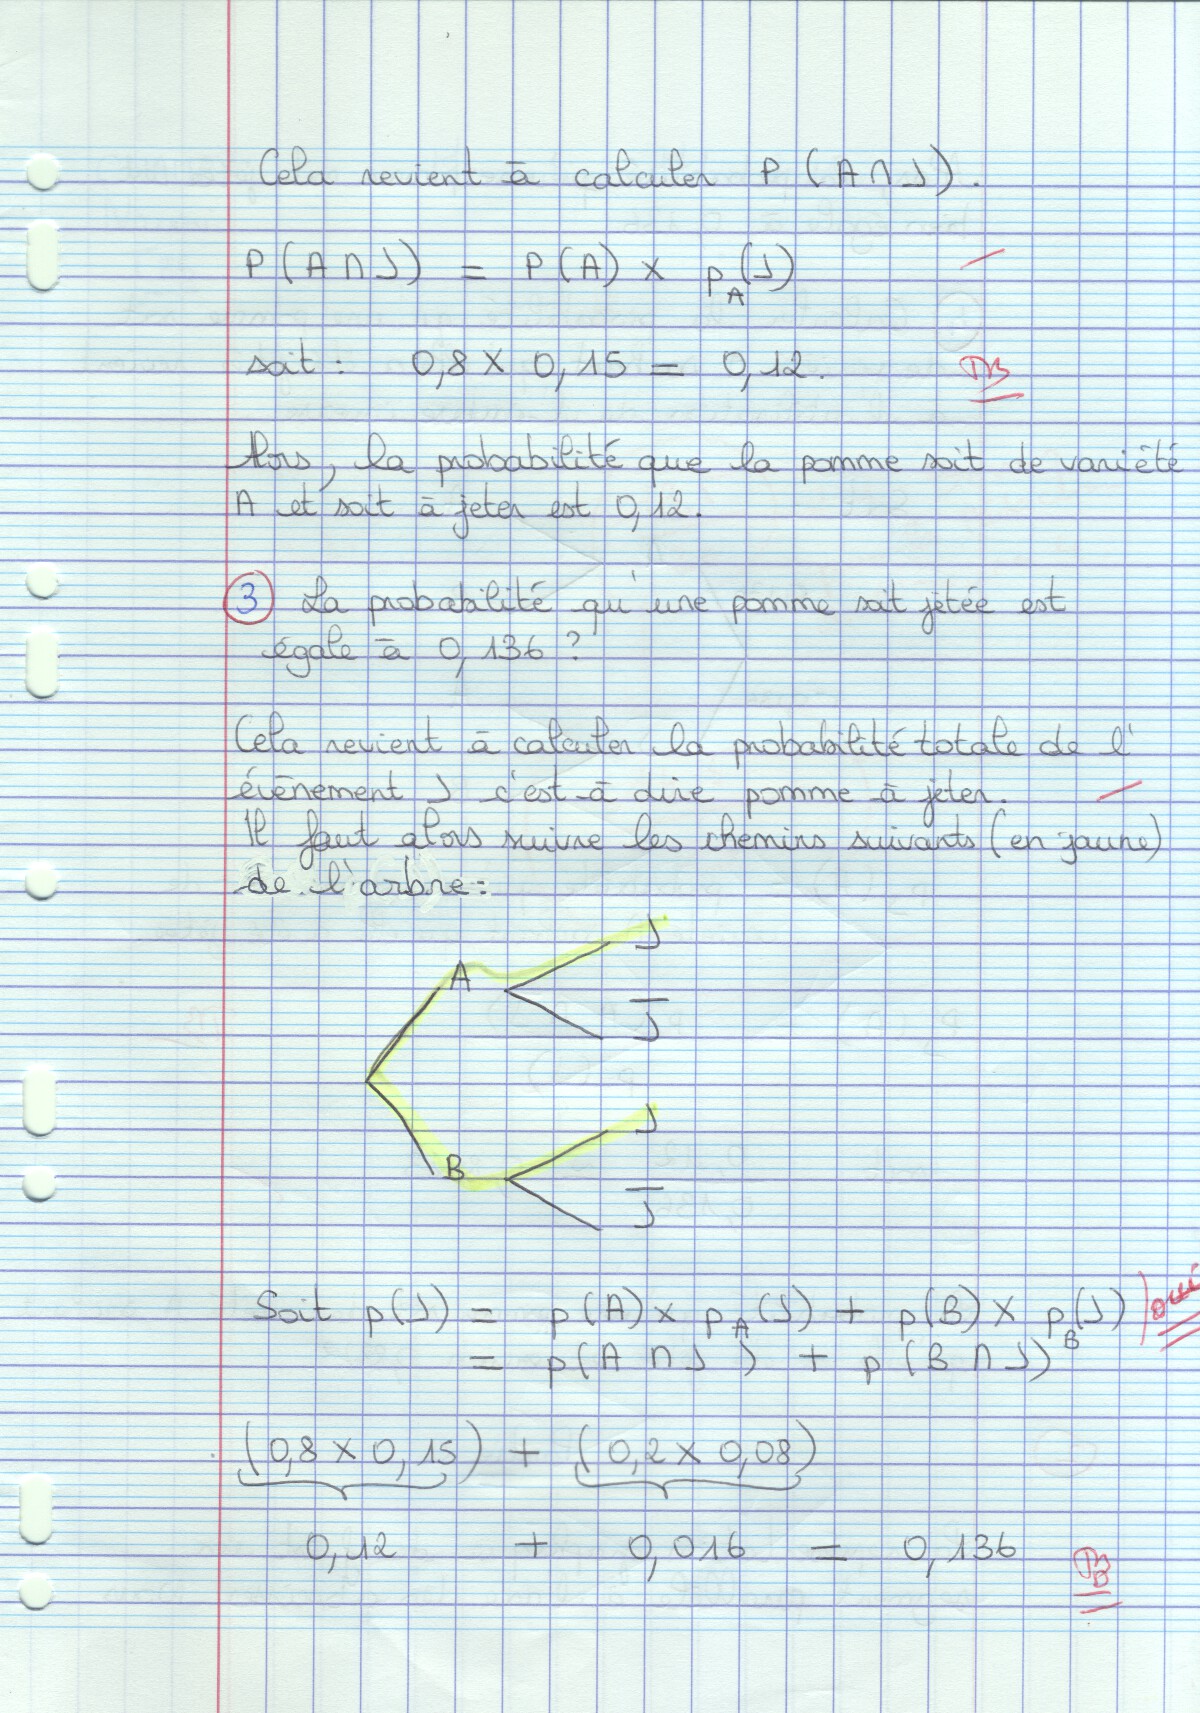 Cela revient à calculer P (A∩J).
P(A∩J) = P(A) × p_A(J)
soit : 0,8 × 0,15 = 0,12. TB
Alors, la probabilité que la pomme soit de variété
A et soit à jeter est 0,12.
3 La probabilité qu'une pomme soit jetée est
égale à 0,136 ?
Cela revient à calculer la probabilité totale de l'
évènement J c'est-à dire pomme à jeter.
Il faut alors suivre les chemins suivants (en jaune)
de l'arbre :
J
A
J̅
J
B
J̅
Soit p(J) = p(A) × p_A(J) + p(B) × p_B(J) oui
= p(A∩J) + p(B∩J)
(0,8 × 0,15) + (0,2 × 0,08)
0,12 + 0,016 = 0,136 TB